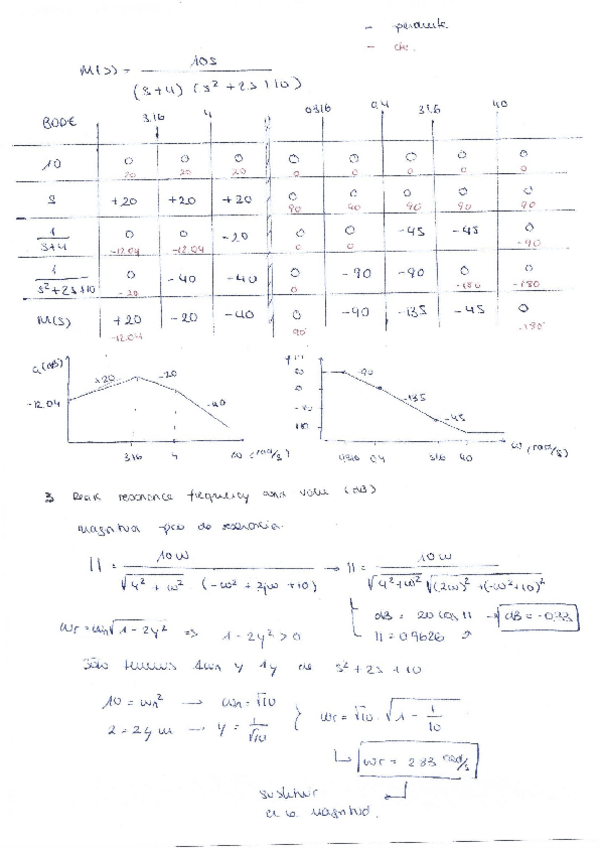 - pendiente.
- cte.
M(s) = 10s
(s+4) (s² + 2s + 10)
BODE 3.16 4 0.316 0.4 31.6 40
10 0 0 0 0 0 0 0 0
20 20 20 0 0 0 0 0
s +20 +20 +20 0 0 0 0 0
90 90 90 90 90
1 / s+4 0 0 -20 0 0 -45 -45 0
-12.04 -12.04 0 0 -90
1 / s²+2s+10 0 -40 -40 0 -90 -90 0 0
-20 0 -180 -180
M(s) +20 -20 -40 0 -90 -135 -45 0
-12.04 90 -180
+20 -20 -90
-12.04 -40 -135 -45
3.16 4 ω (rad/s) 0.316 0.4 31.6 40 ω (rad/s)
3 Peak resonance frequency and value (dB)
Magnitud pico de resonancia.
11 = 10ω / √4² + ω² (-ω² + 2jω + 10) → 11 = 10ω / √4²+ω² √(2ω)² + (-ω²+10)²
dB = 20 log 11 → dB = -0.33
11 = 0.9626
ωr = ωn√1 - 2y² => 1 - 2y² > 0
Sólo tenemos 1ωn y 1y de s² + 2s + 10
10 = ωn² → ωn = √10
2 = 2y ωn → y = 1/√10
ωr = √10 · √1 - 1/10
ωr = 2.83 rad/s
sustituir
en la magnitud.